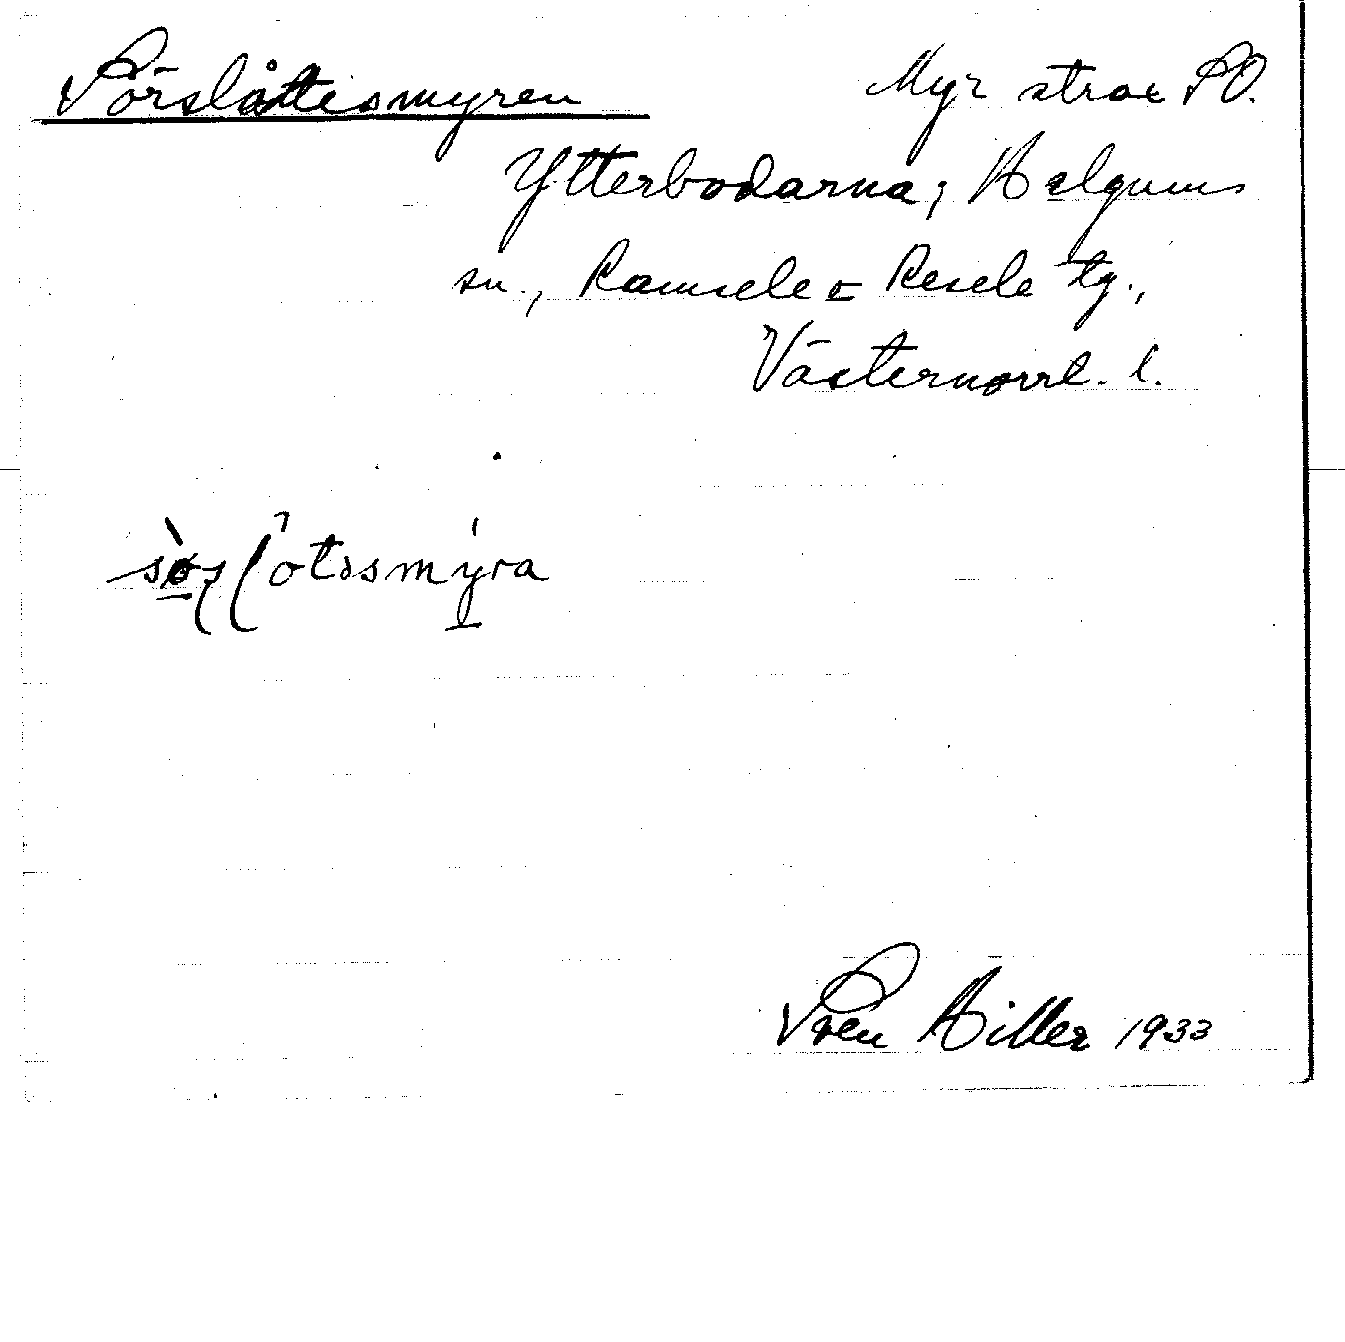 Sörslåttesmyren
Myr strax SO.
Ytterbodarna, Helgums
sn., Ramsele o Resele tg.,
Västernorrl. l.
Sven Hiller 1933